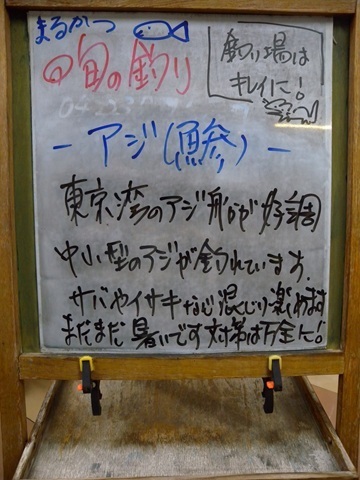 まるかつ
旬の釣り
釣り場は
キレイに!
－アジ(鯵)－
東京湾のアジ船が好調
中小型のアジが釣れています.
サバやイサキなど混じり楽しめます
まだまだ暑いです対策は万全に!